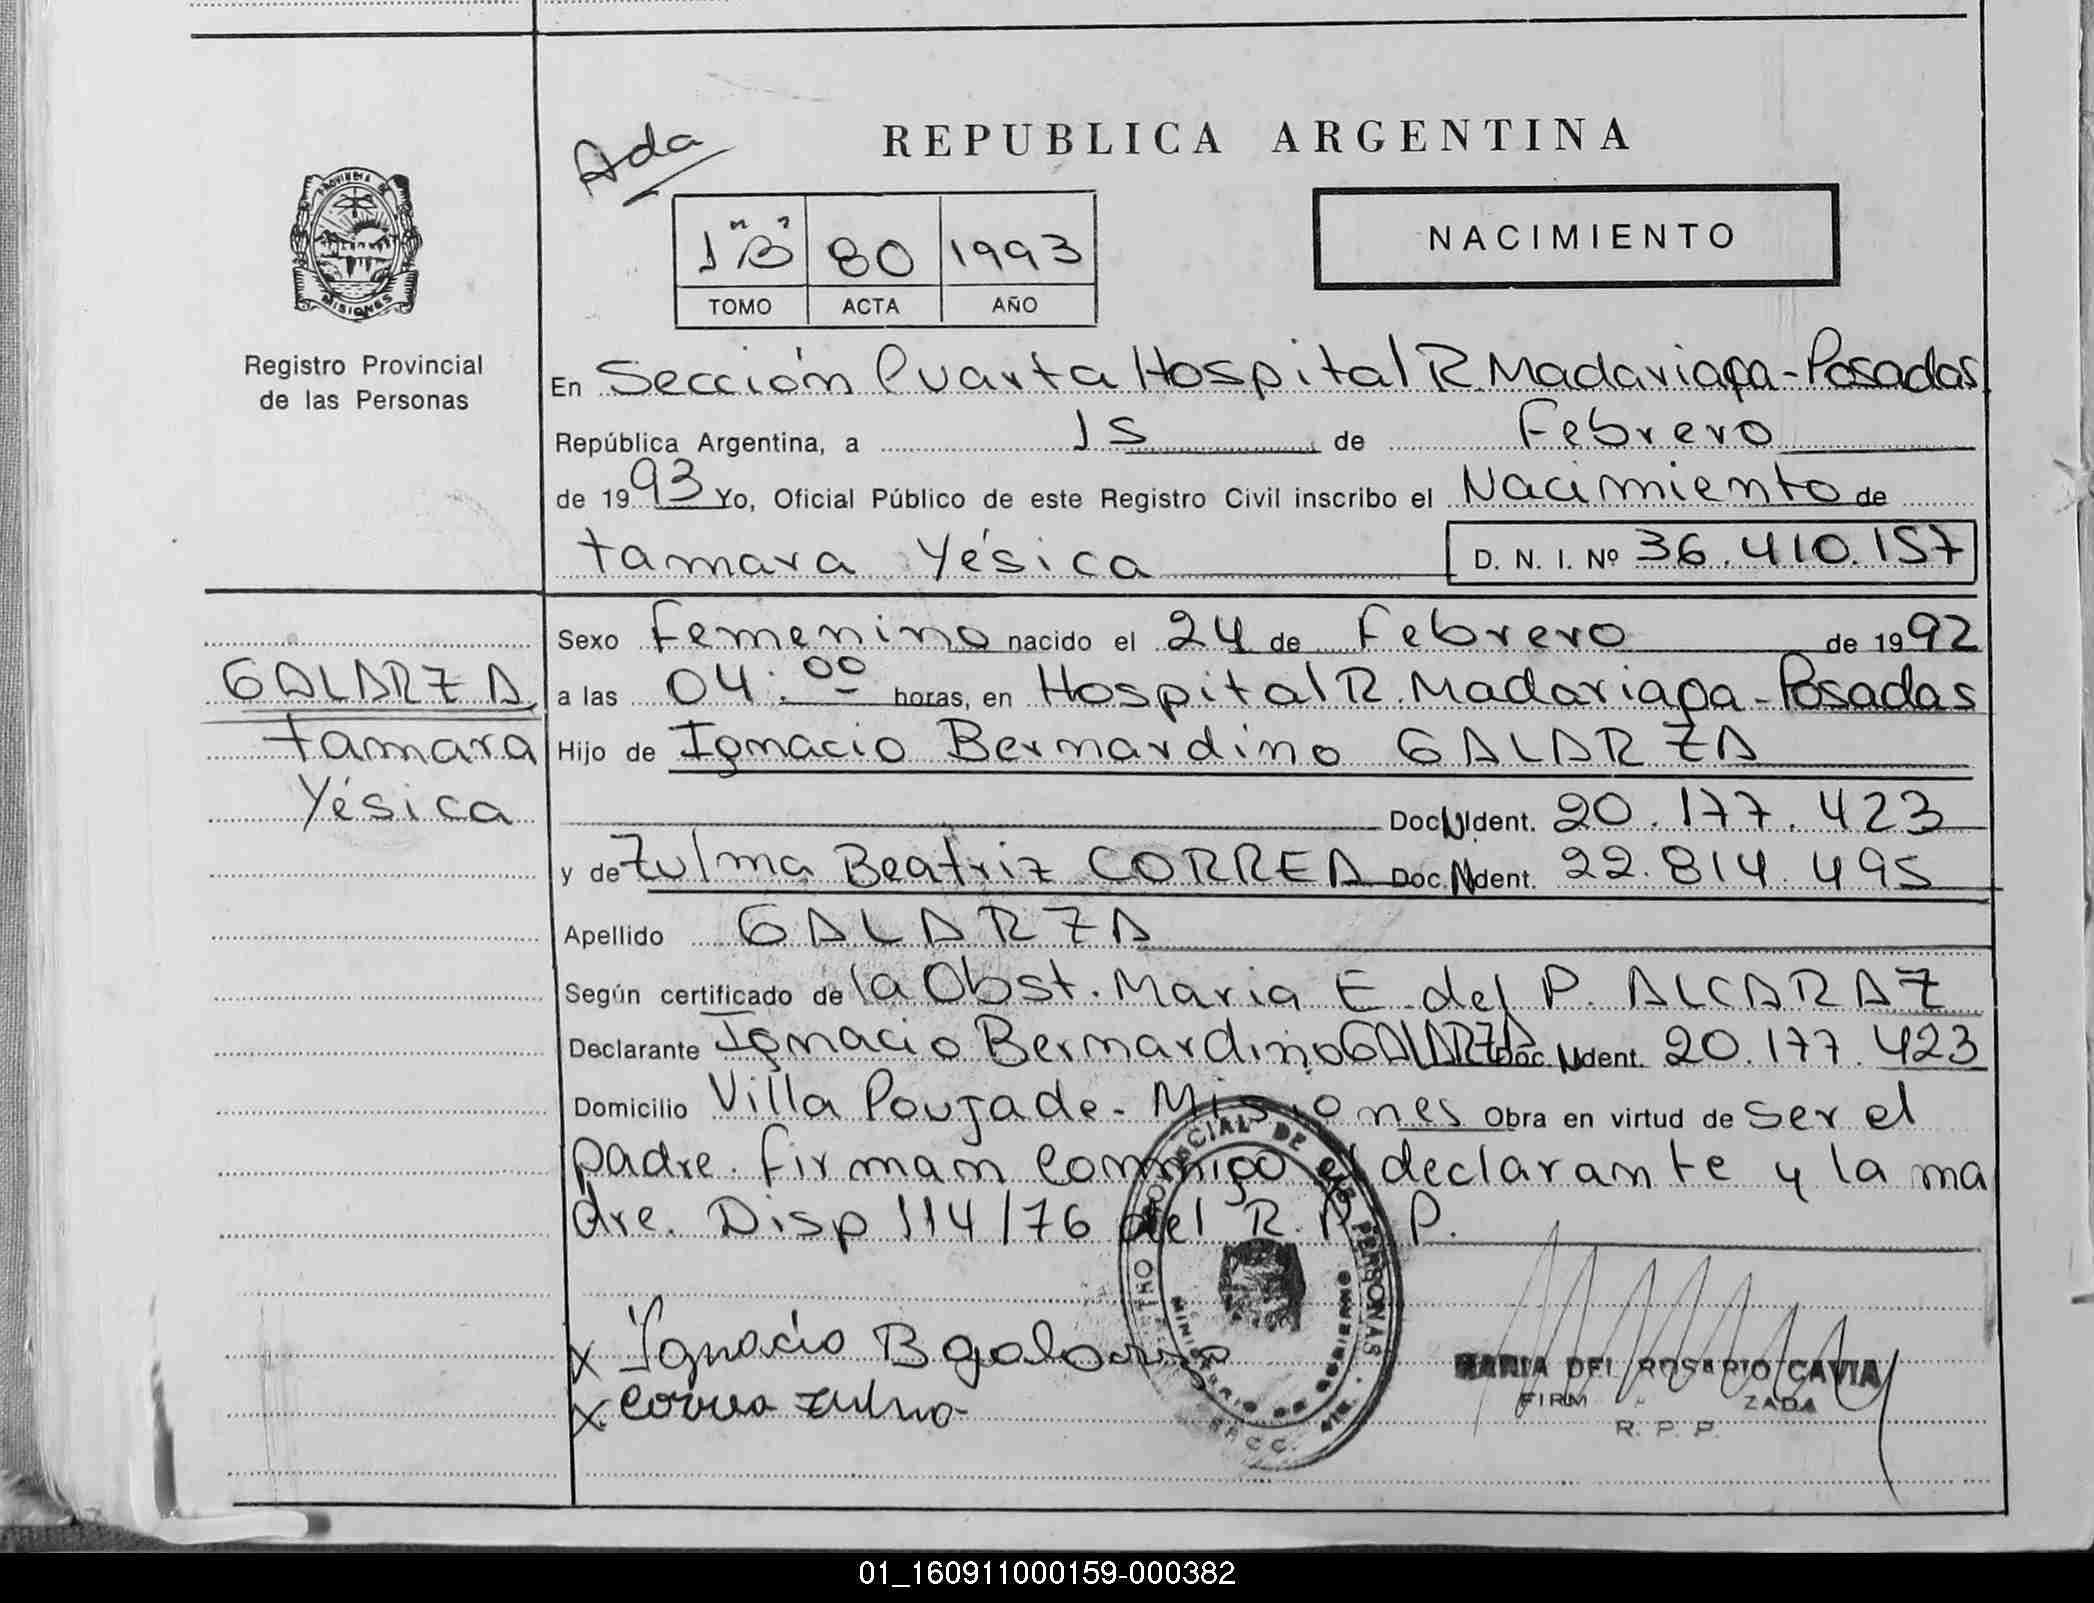 REPUBLICA ARGENTINA
Ada
1 "B"
80
1993
TOMO
ACTA
AÑO
NACIMIENTO
PROVINCIA DE
MISIONES
Registro Provincial
de las Personas
En Sección Cuarta Hospital R. Madariaga - Posadas
República Argentina, a 15 de Febrero
de 1993 Yo, Oficial Público de este Registro Civil inscribo el Nacimiento de
Tamara Yésica D. N. I. Nº 36.410.157
GALARZA
Tamara
Yésica
Sexo Femenino nacido el 24 de Febrero de 1992
a las 04:00 horas, en Hospital R. Madariaga - Posadas
Hijo de Ignacio Bernardino GALARZA
Doc. N Ident. 20.177.423
y de Zulma Beatriz CORREA Doc. N Ident. 22.814.495
Apellido GALARZA
Según certificado de la Obst. Maria E. del P. ALCARAZ
Declarante Ignacio Bernardino GALARZA Doc. N Ident. 20.177.423
Domicilio Villa Poujade - Misiones Obra en virtud de ser el
padre. Firman conmigo el declarante y la ma
dre. Disp 114/76 del R. P. P.
DE LAS PERSONAS
MINISTERIO DE GOBIERNO
x Ignacio B galarza
x Correa Zulma
MARIA DEL ROSARIO CAVIA
FIRM ZADA
R. P. P.
01_160911000159-000382